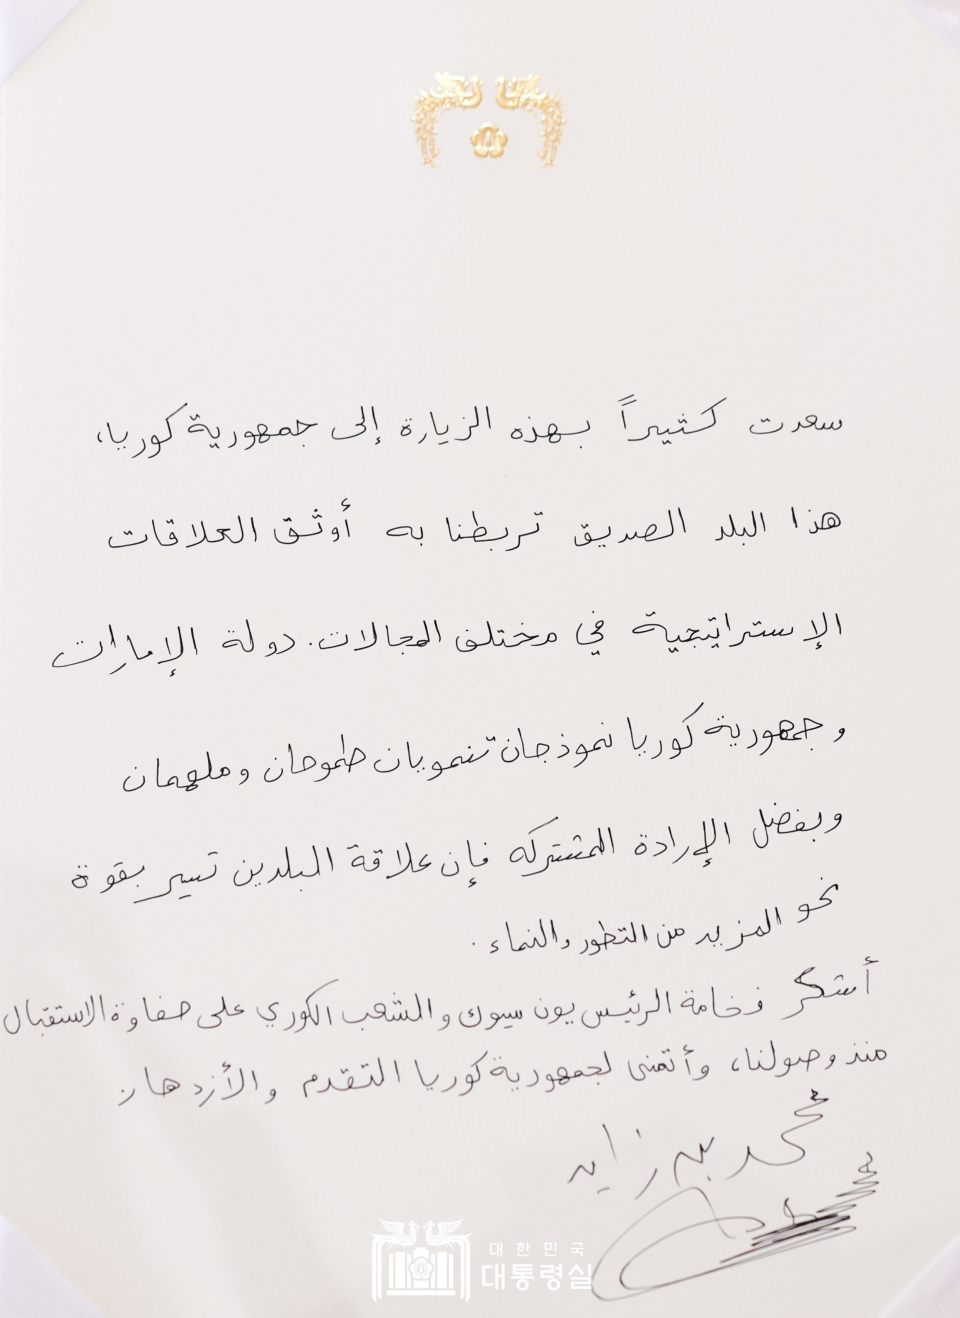 سعدت كثيراً بهذه الزيارة إلى جمهورية كوريا،
هذا البلد الصديق تربطنا به أوثق العلاقات
الإستراتيجية في مختلف المجالات. دولة الإمارات
وجمهورية كوريا نموذجان تنمويان طموحان وملهمان
وبفضل الإرادة المشتركة فإن علاقة البلدين تسير بقوة
نحو المزيد من التطور والنماء.
أشكر فخامة الرئيس يون سيوك والشعب الكوري على حفاوة الاستقبال
منذ وصولنا، وأتمنى لجمهورية كوريا التقدم والأزدهار
محمد بن زايد
대한민국
대통령실